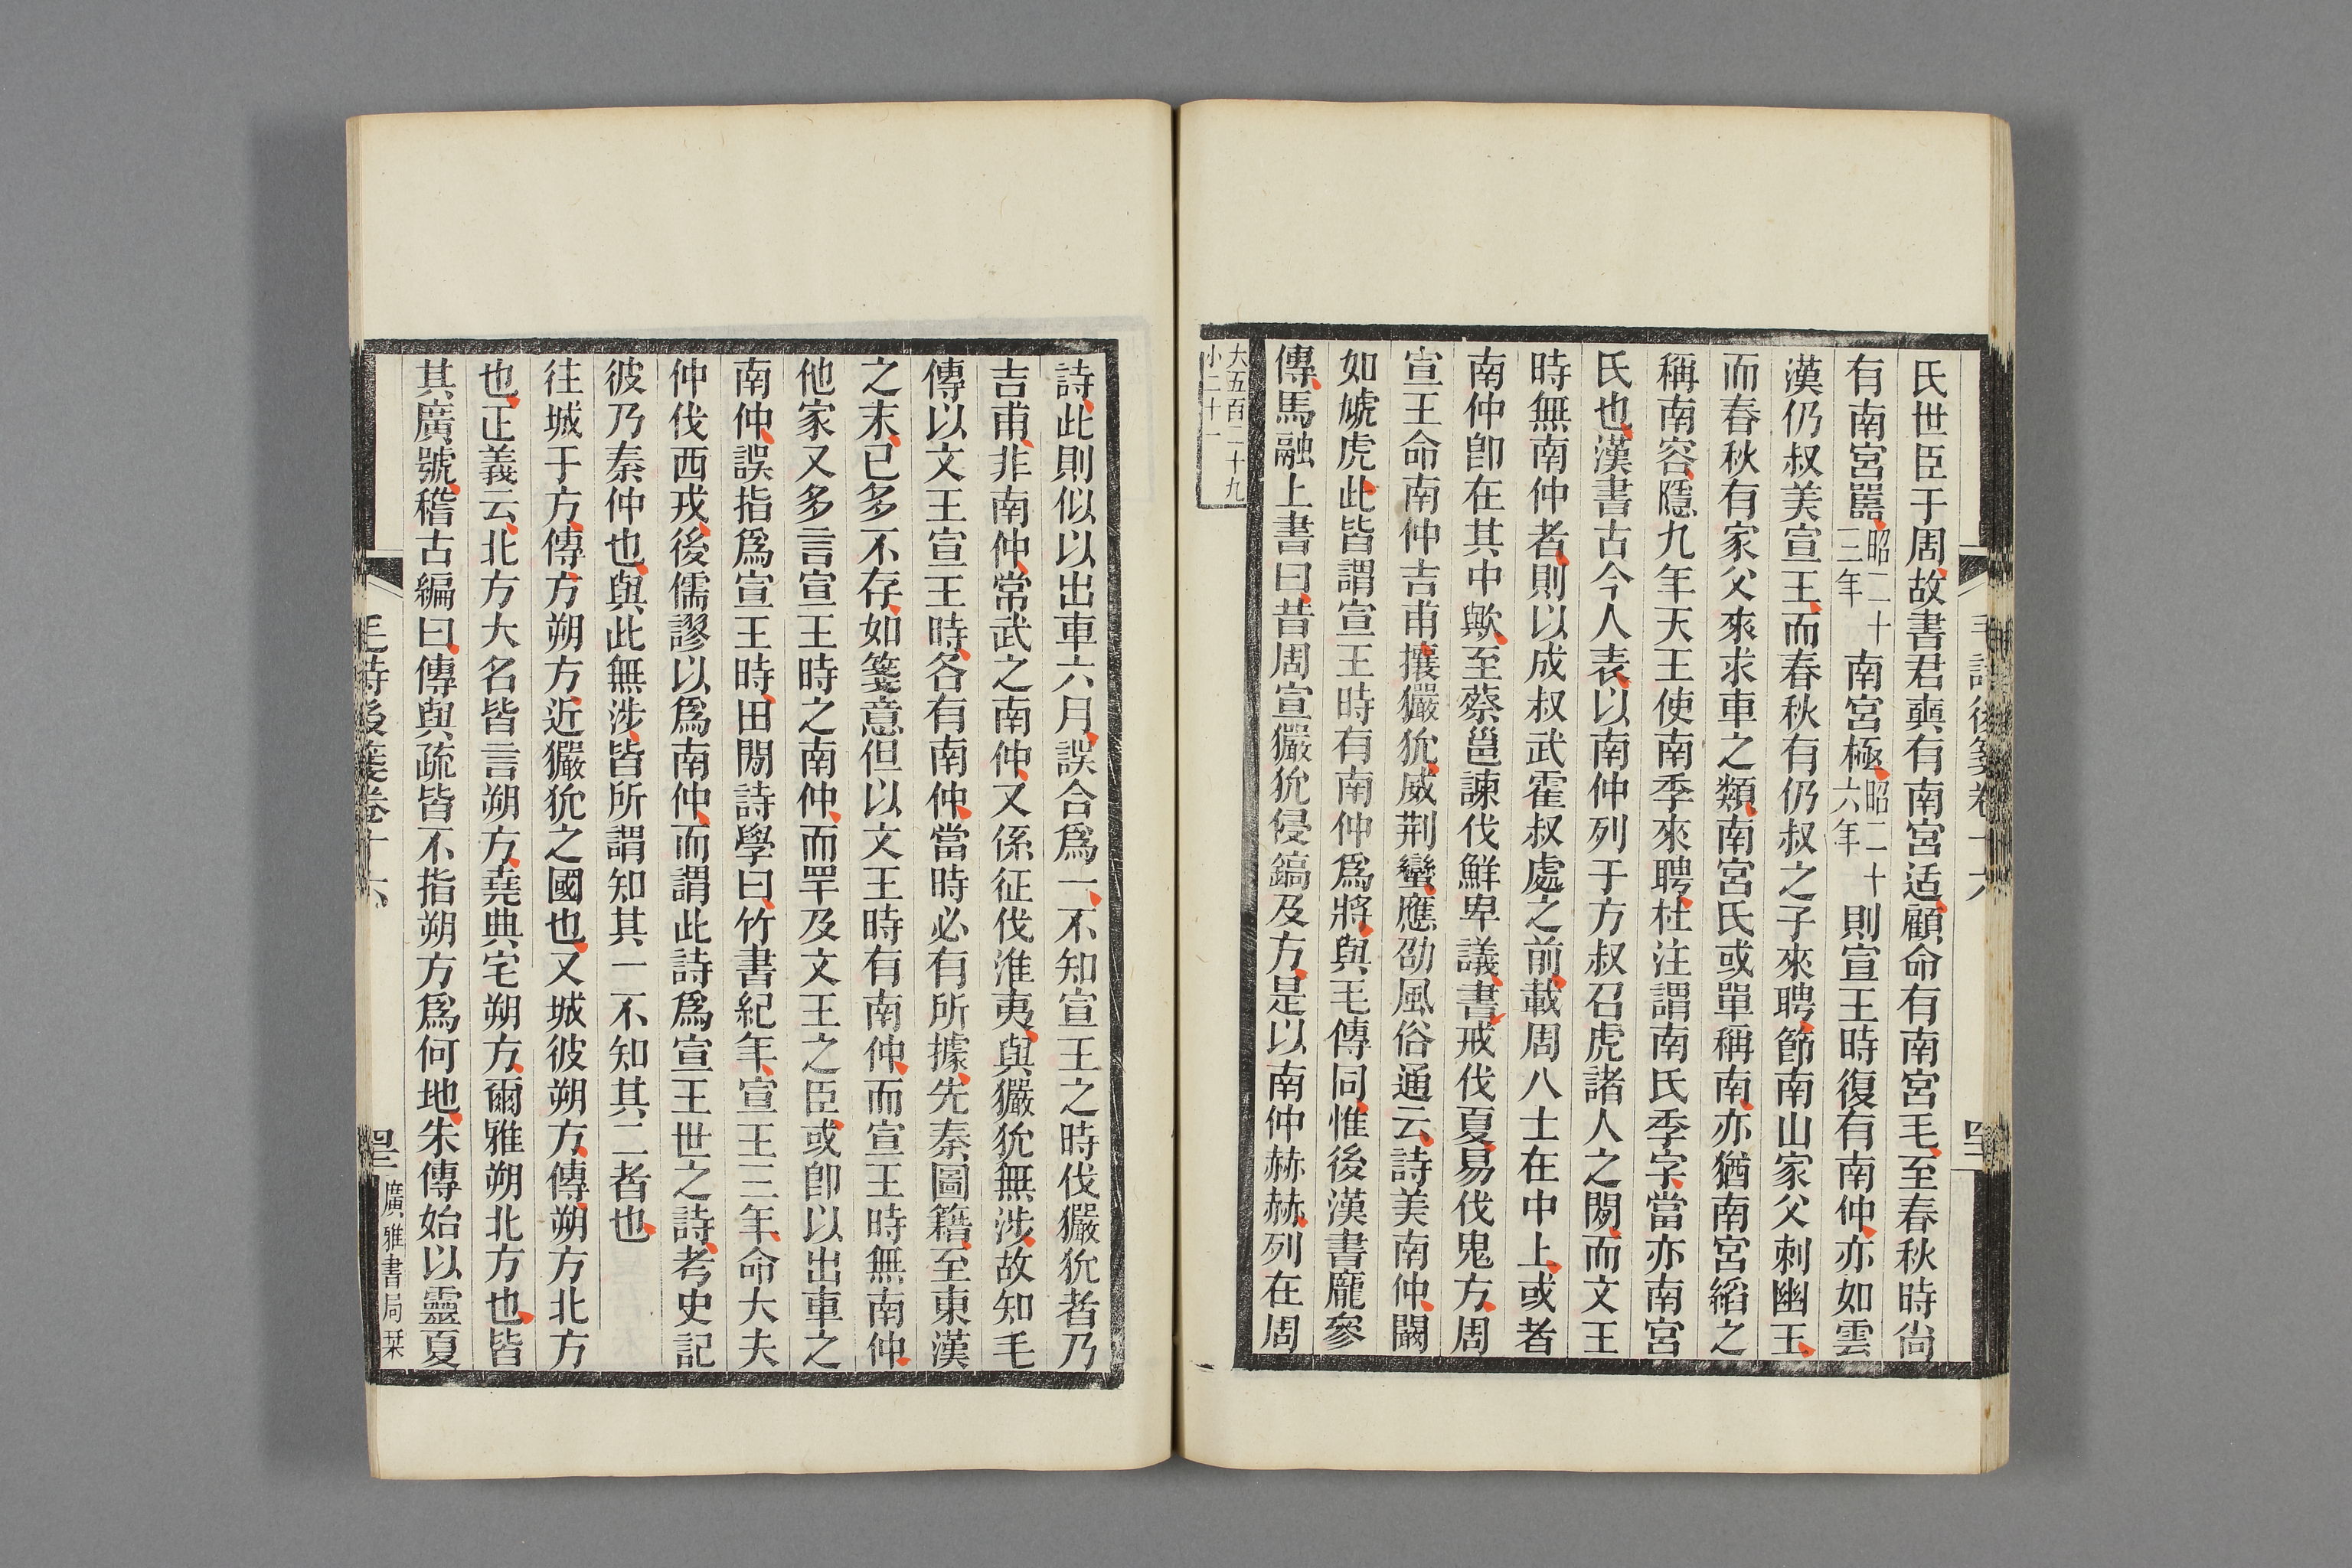 氏世臣于周故書君奭有南宮适顧命有南宮毛至春秋時尙
有南宮嚚昭二十三年南宮極昭二十六年則宣王時復有南仲亦如雲
漢仍叔美宣王而春秋有仍叔之子來聘節南山家父刺幽王
而春秋有家父來求車之類南宮氏或單稱南亦猶南宮縚之
稱南容隱九年天王使南季來聘杜注謂南氏季字當亦南宮
氏也漢書古今人表以南仲列于方叔召虎諸人之閒而文王
時無南仲者則以成叔武霍叔處之前載周八士在中上或者
南仲卽在其中歟至蔡邕諫伐鮮卑議書戒伐夏易伐鬼方周
宣王命南仲吉甫攘玁狁威荆蠻應劭風俗通云詩美南仲闞
如虓虎此皆謂宣王時有南仲爲將與毛傳同惟後漢書龐參
傳馬融上書曰昔周宣玁狁侵鎬及方是以南仲赫赫列在周
大五百二十九
小二十一
詩此則似以出車六月誤合爲一不知宣王之時伐玁狁者乃
吉甫非南仲常武之南仲又係征伐淮夷與玁狁無涉故知毛
傳以文王宣王時各有南仲當時必有所據先秦圖籍至東漢
之末已多不存如箋意但以文王時有南仲而宣王時無南仲
他家又多言宣王時之南仲而罕及文王之臣或卽以出車之
南仲誤指爲宣王時田閒詩學曰竹書紀年宣王三年命大夫
仲伐西戎後儒謬以爲南仲而謂此詩爲宣王世之詩考史記
彼乃秦仲也與此無涉皆所謂知其一不知其二者也
往城于方傳方朔方近玁狁之國也又城彼朔方傳朔方北方
也正義云北方大名皆言朔方堯典宅朔方爾雅朔北方也皆
其廣號稽古編曰傳與疏皆不指朔方爲何地朱傳始以靈夏
毛詩後箋卷十六
廣雅書局栞